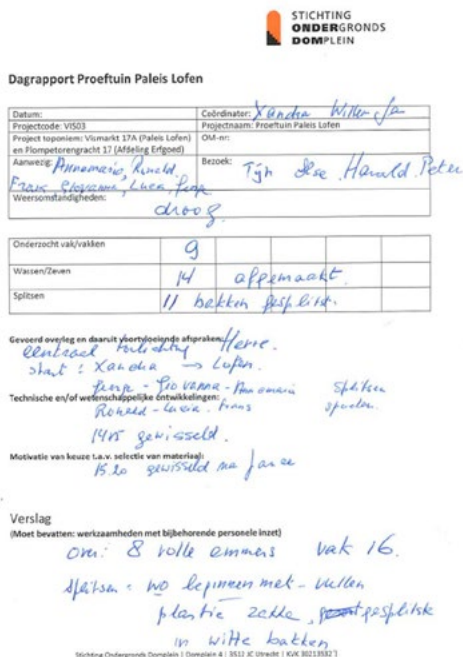 STICHTING
ONDERGRONDS
DOMPLEIN
Dagrapport Proeftuin Paleis Lofen
Datum:
Coördinator: Xandra Willem Jan
Projectcode: VIS03
Projectnaam: Proeftuin Paleis Lofen
Project toponiem: Vismarkt 17A (Paleis Lofen)
en Plompetorengracht 17 (Afdeling Erfgoed)
OM-nr:
Aanwezig: Annemarie, Ronald,
Frans Giovanna, Luca,
Bezoek: Tijn Ilse Harold Peter
Weersomstandigheden:
droog.
Onderzocht vak/vakken 9
Wassen/Zeven 14 afgemaakt.
Splitsen 11 bakken gesplitst.
Gevoerd overleg en daaruit voortvloeiende afspraken: Herre.
centraal toelichting
start : Xandra → Lofen.
- Giovanna - Annemarie Splitsen
Technische en/of wetenschappelijke ontwikkelingen:
Ronald - Lucia. frans spoelen.
14 gewisseld.
Motivatie van keuze t.a.v. selectie van materiaal:
15 20 gewisseld na
Verslag
(Moet bevatten: werkzaamheden met bijbehorende personele inzet)
over: 8 volle emmers vak 16.
splitsen = wo beginnen met - vullen
plastic zakke, gesplitste
in witte bakken
Stichting Ondergronds Domplein | Domplein 4 | 3512 JC Utrecht | KVK 30213532